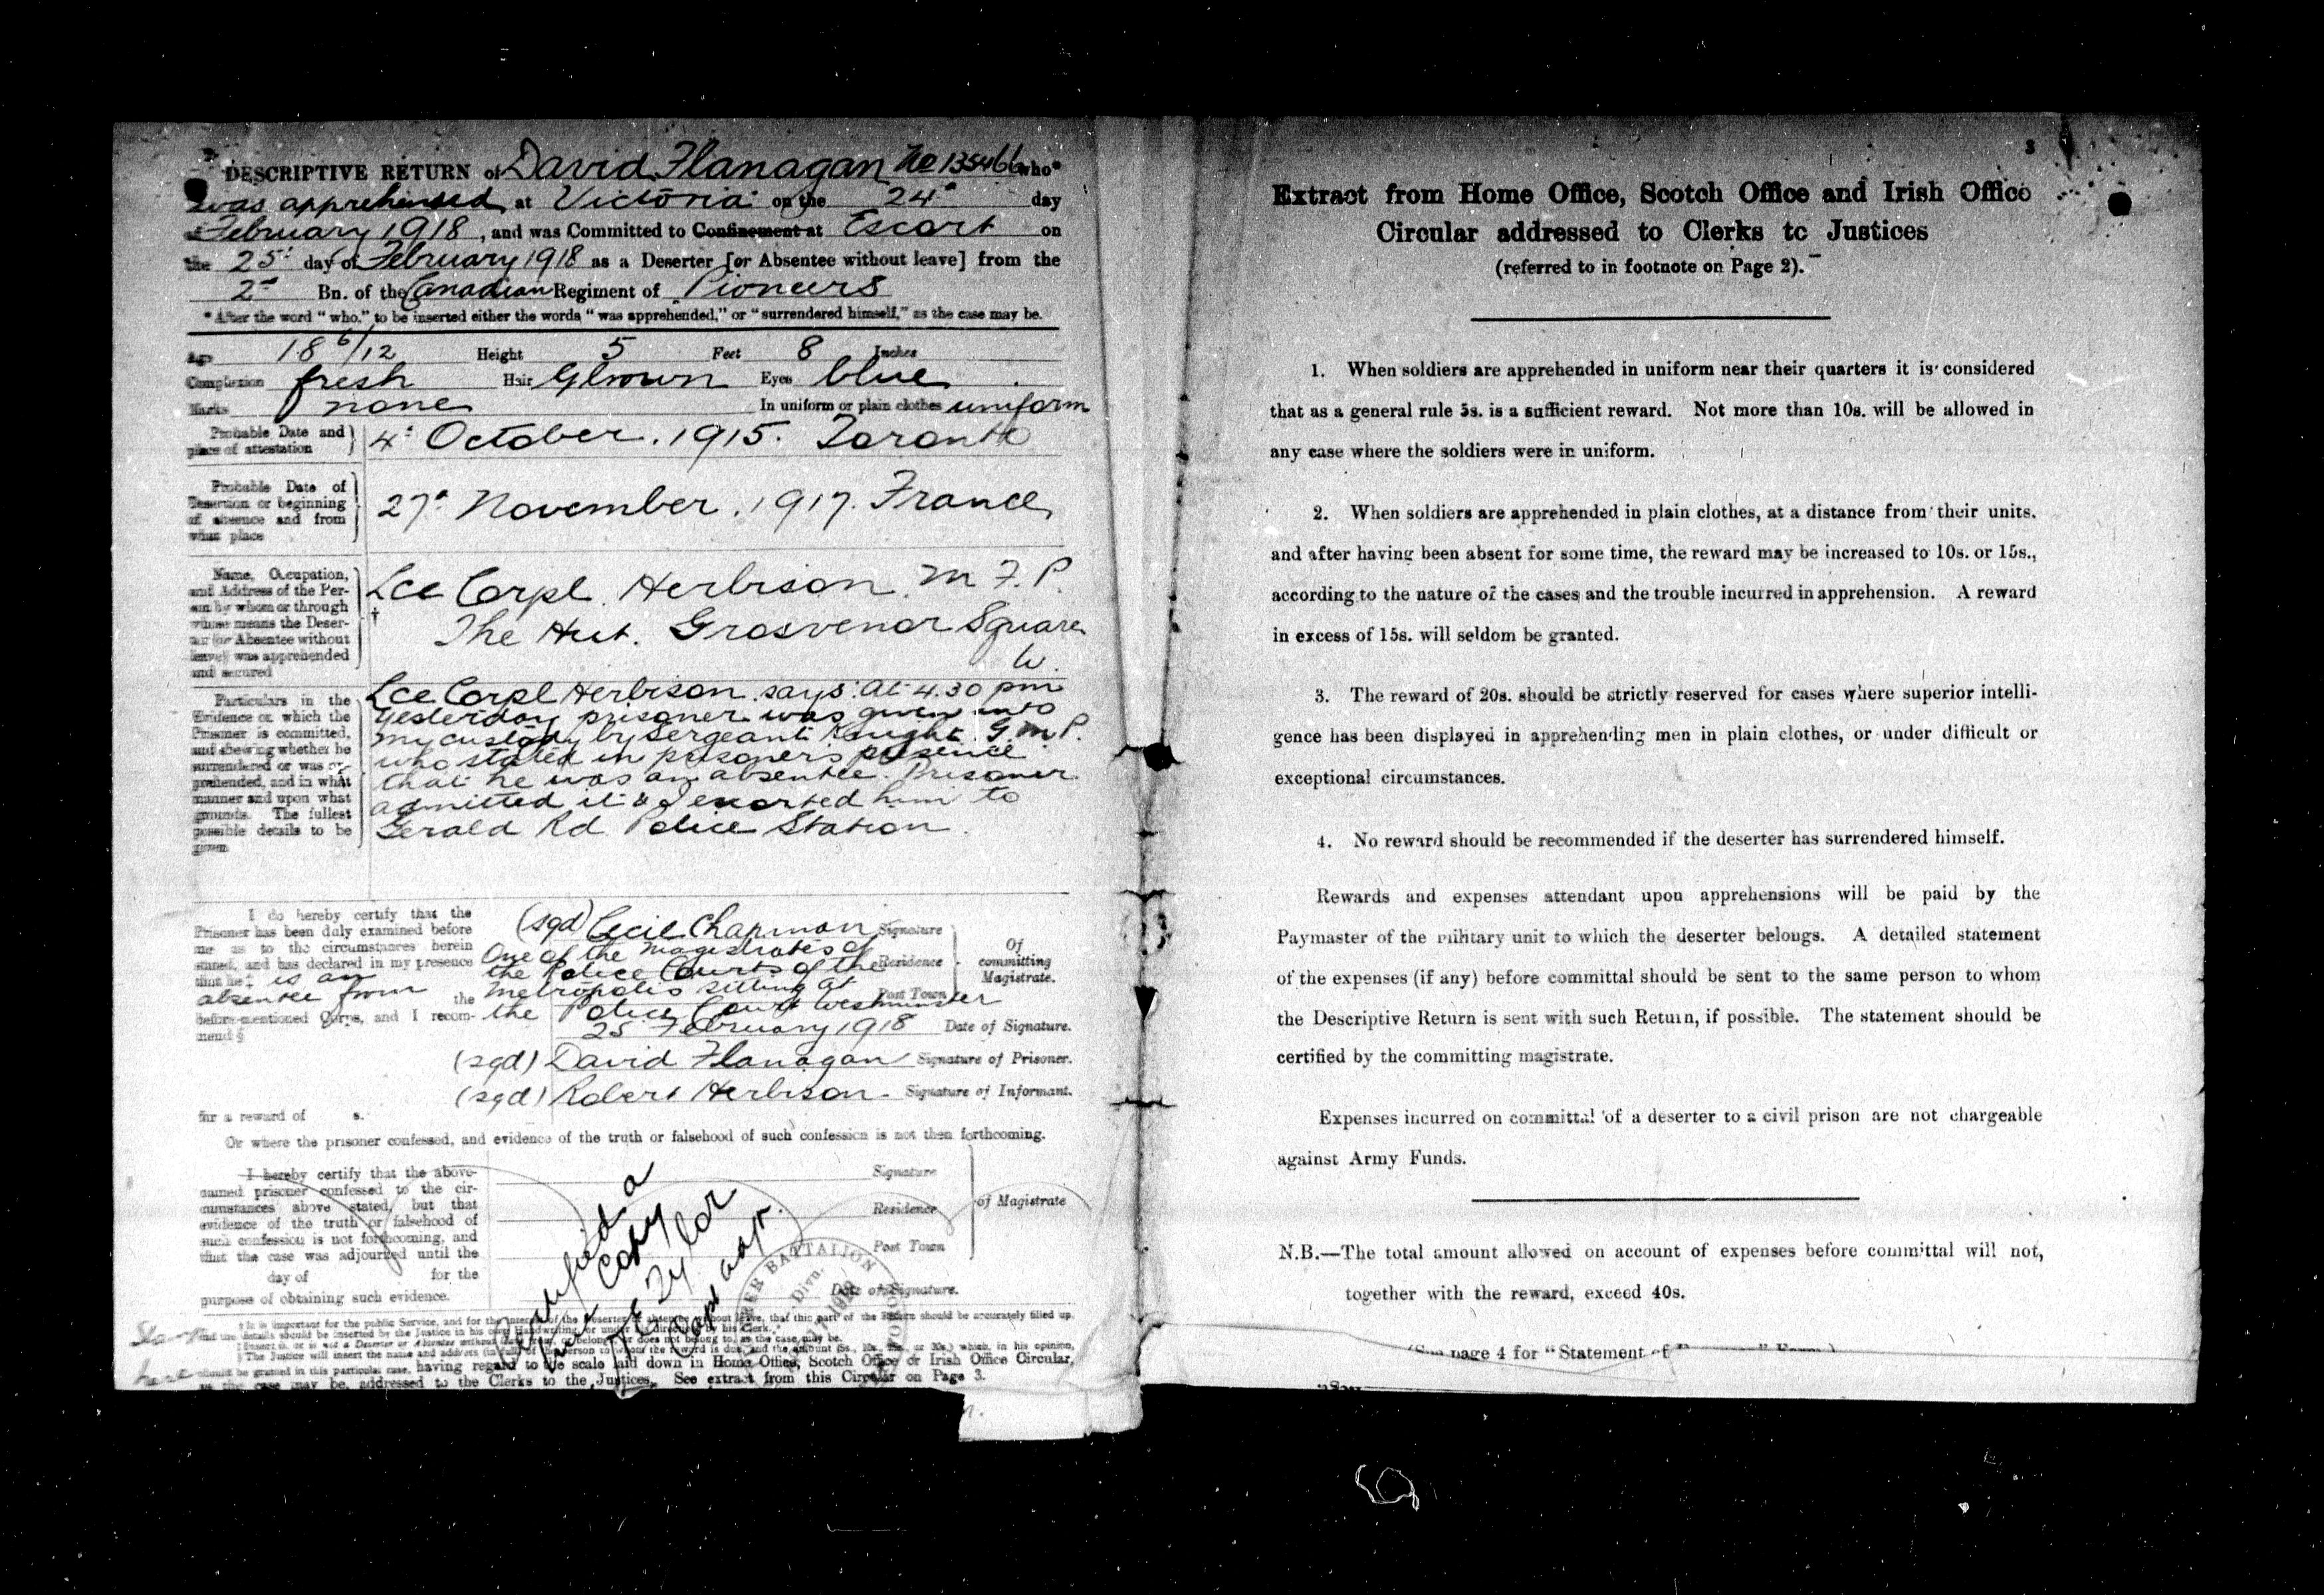 DESCRIPTIVE RETURN of David Flanagan No 135466 who*
was apprehended at Victoria on the 24th day
February 1918, and was Committed to Confinement at Escort on
the 25th day of February 1918 as a Deserter [or Absentee without leave] from the
2nd Bn. of the Canadian Regiment of Pioneers
*After the word "who," to be inserted either the words "was apprehended," or "surrendered himself," as the case may be.
Age 18 6/12 Height 5 Feet 8 Inches
Complexion fresh Hair Gbrown Eyes blue
Marks none In uniform or plain clothes uniform
Probable Date and
place of attestation
4th October. 1915. Toronto
Probable Date of
Desertion or beginning
of absence and from
what place
27th November. 1917. France
Name, Occupation,
and Address of the Per-
son by whom or through
whose means the Deser-
ter (or Absentee without
leave) was apprehended
and secured
†
Lce Corpl. Herbison. M F. P.
The Hut. Grosvenor Square
W.
Particulars in the
Evidence on which the
Prisoner is committed,
and shewing whether he
surrendered or was ap-
prehended, and in what
manner and upon what
grounds. The fullest
possible details to be
given
Lce Corpl Herbison says: At 4.30 pm
yesterday prisoner was given into
my custody by Sergeant Knight G.M.P.
who stated in prisoners presence
that he was an absentee. Prisoner
admitted it & I escorted him to
Gerald Rd Police Station.
I do hereby certify that the
Prisoner has been duly examined before
me as to the circumstances herein
stated, and has declared in my presence
that he‡ is an
absentee from the
before-mentioned Corps, and I recom-
mend §
(sgd) Cecil Chapman Signature
One of the Magistrates of
the Police Courts of the Residence
Metropolis sitting at
the Police Court Westminster Post Town
Of
committing
Magistrate.
25 February 1918 Date of Signature.
(sgd) David Flanagan Signature of Prisoner.
(sgd) Robert Herbison Signature of Informant.
for a reward of s.
Or where the prisoner confessed, and evidence of the truth or falsehood of such confession is not then forthcoming.
I hereby certify that the above-
named prisoner confessed to the cir-
cumstances above stated, but that
evidence of the truth or falsehood of
such confession is not forthcoming, and
that the case was adjourned until the
day of for the
purpose of obtaining such evidence.
Signature
Residence
Post Town
of Magistrate
Date of Signature.
Certified a
true copy
Taylor
Capt. adjt.
BATTALION
Divn.
† It is important for the public Service, and for the interest of the Deserter or absentee without leave, that this part of the Return should be accurately filled up,
and the details should be inserted by the Justice in his own Handwriting, or under his direction by his Clerk.
‡ Insert is, or is not a Deserter or Absentee without leave from, or belongs or does not belong to, as the case may be.
§ The Justice will insert the name and address (in full) of the person to whom the reward is due, and the amount (5s., 10s., 15s., or 20s.) which, in his opinion,
should be granted in this particular case, having regard to the scale laid down in Home Office, Scotch Office or Irish Office Circular,
as the case may be, addressed to the Clerks to the Justices. See extract from this Circular on Page 3.
here
3
Extract from Home Office, Scotch Office and Irish Office
Circular addressed to Clerks to Justices
(referred to in footnote on Page 2).
1. When soldiers are apprehended in uniform near their quarters it is considered
that as a general rule 5s. is a sufficient reward. Not more than 10s. will be allowed in
any case where the soldiers were in uniform.
2. When soldiers are apprehended in plain clothes, at a distance from their units,
and after having been absent for some time, the reward may be increased to 10s. or 15s.,
according to the nature of the cases and the trouble incurred in apprehension. A reward
in excess of 15s. will seldom be granted.
3. The reward of 20s. should be strictly reserved for cases where superior intelli-
gence has been displayed in apprehending men in plain clothes, or under difficult or
exceptional circumstances.
4. No reward should be recommended if the deserter has surrendered himself.
Rewards and expenses attendant upon apprehensions will be paid by the
Paymaster of the military unit to which the deserter belongs. A detailed statement
of the expenses (if any) before committal should be sent to the same person to whom
the Descriptive Return is sent with such Return, if possible. The statement should be
certified by the committing magistrate.
Expenses incurred on committal of a deserter to a civil prison are not chargeable
against Army Funds.
N.B.—The total amount allowed on account of expenses before committal will not,
together with the reward, exceed 40s.
(See page 4 for "Statement of